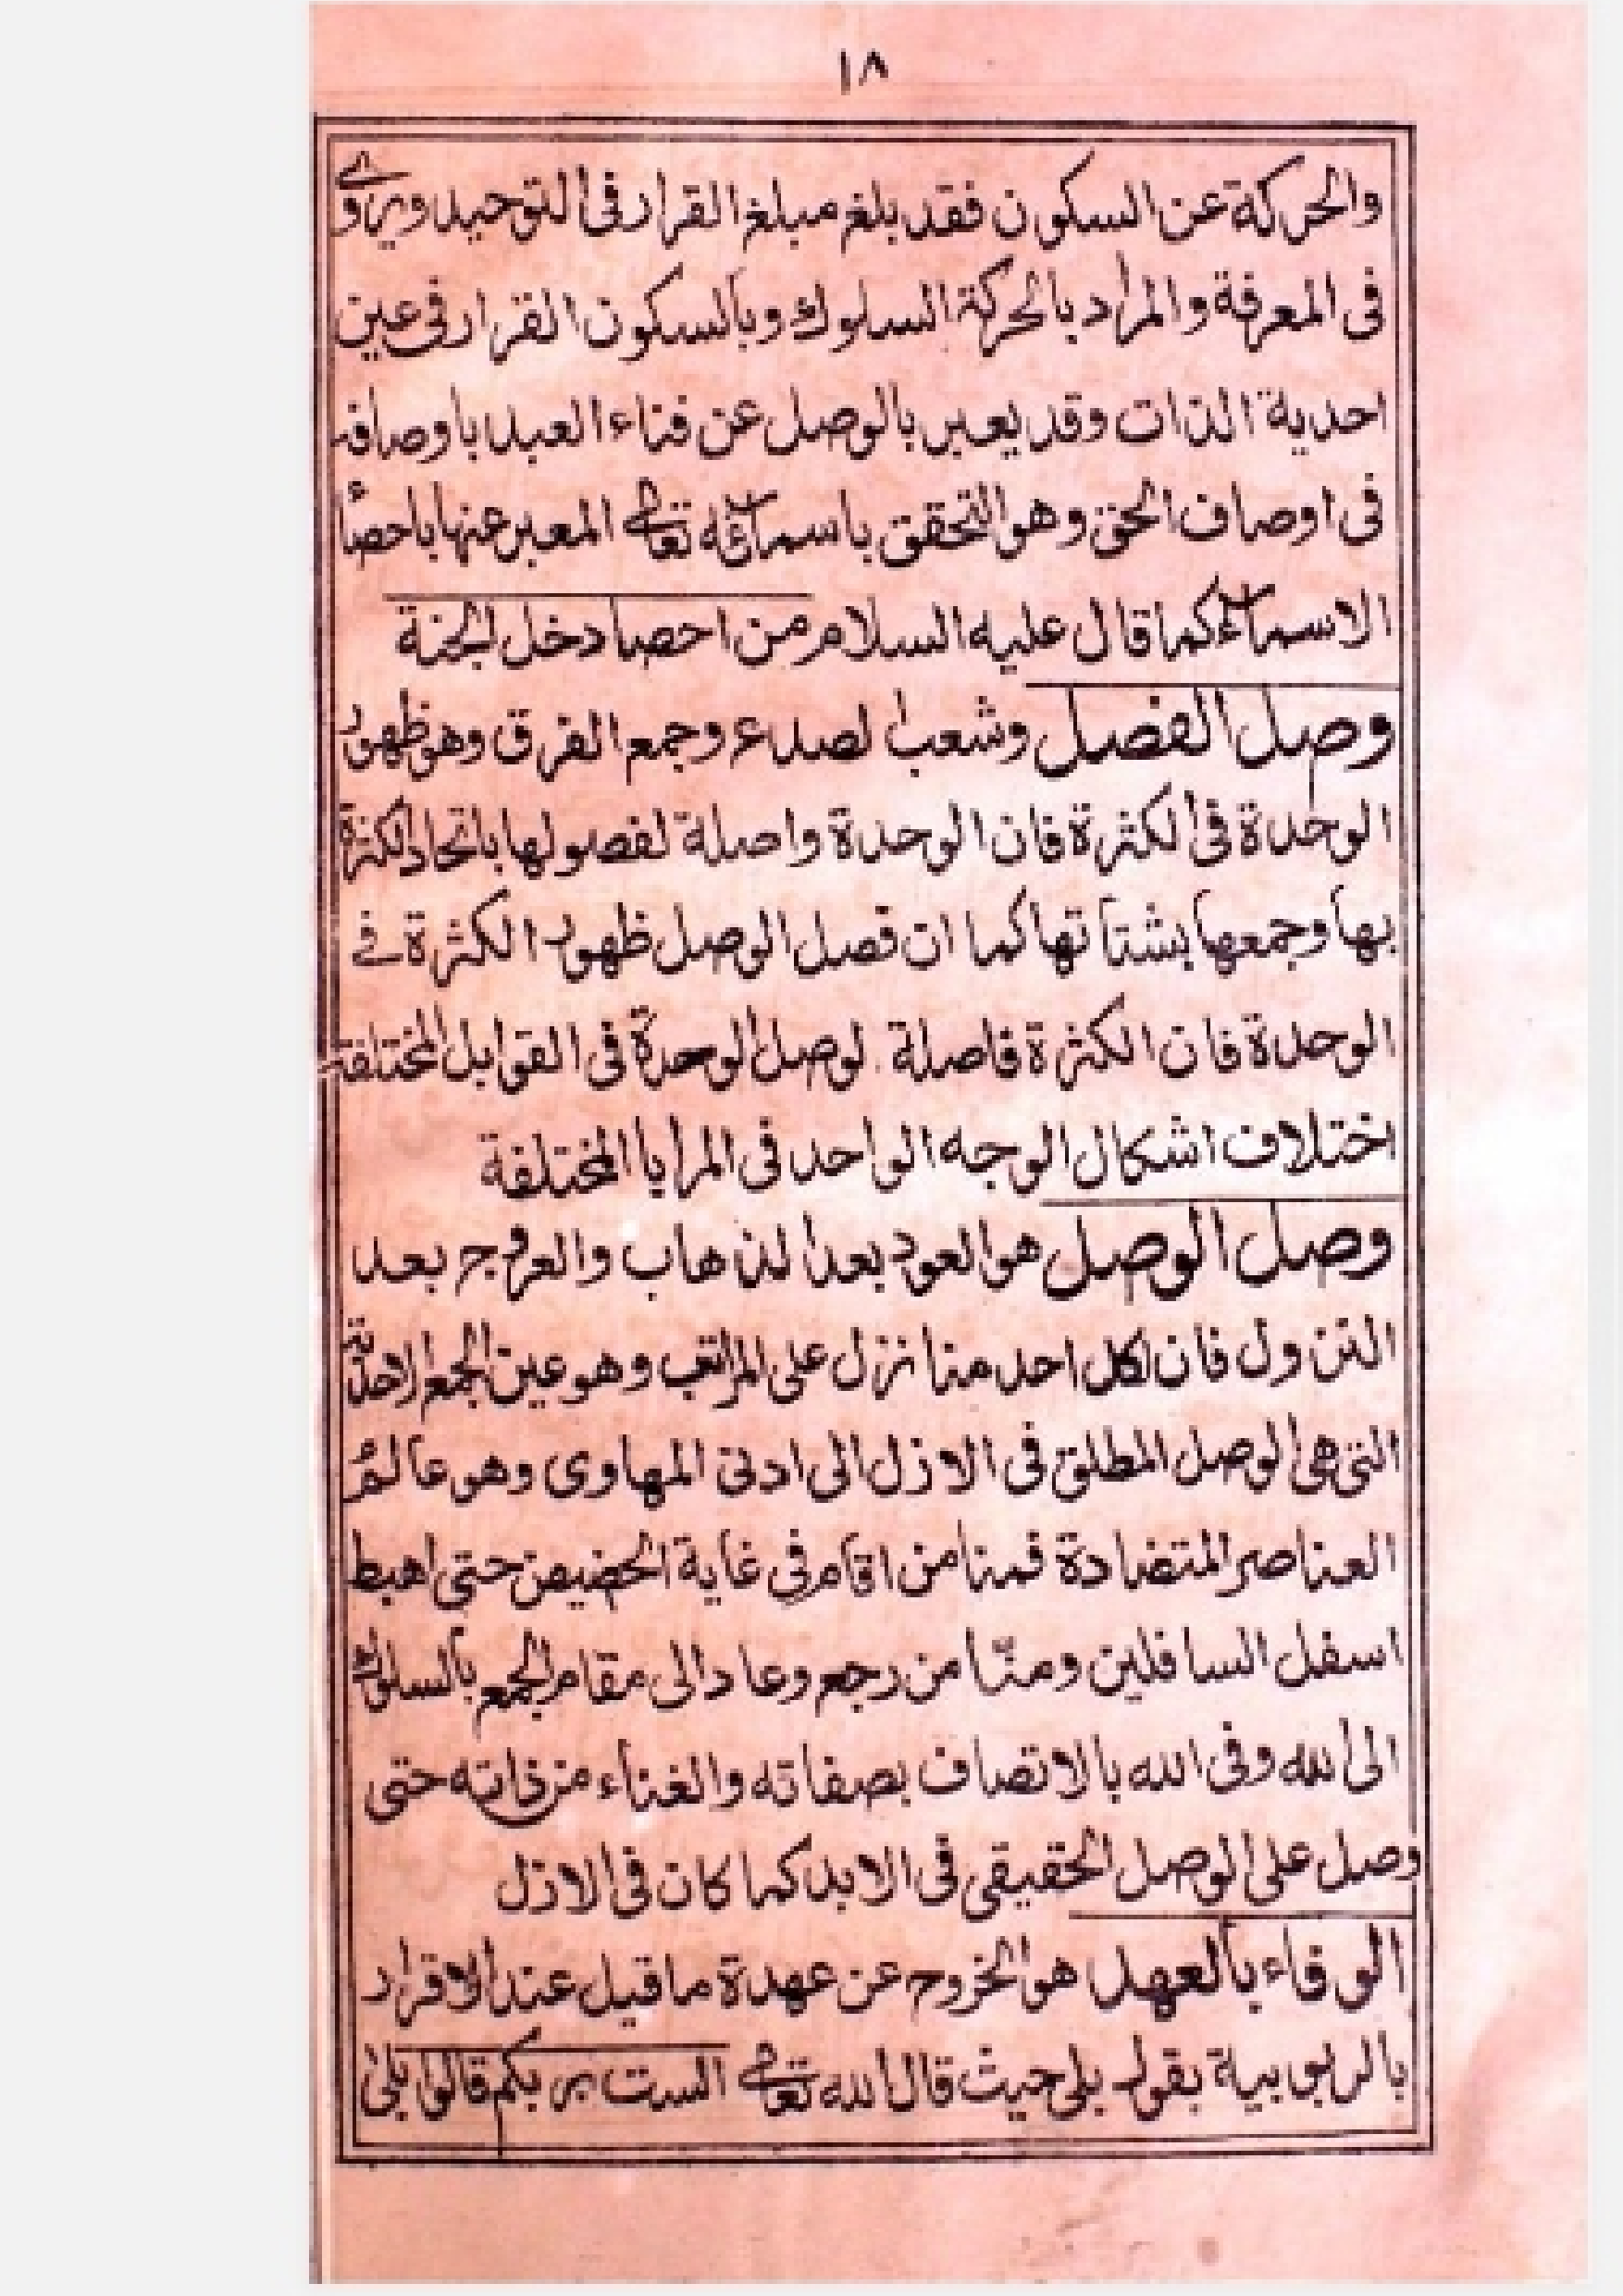 ١٨
والحركة عن السكون فقد بلغ مبلغ القرار فى التوحيد ويروى
فى المعرفة والمراد بالحركة السلوك وبالسكون القرار فى عين
احدية الذات وقد يعبر بالوصل عن فناء العبد باوصافه
فى اوصاف الحق وهو التحقق باسمائه تعالى المعبر عنها باحصاء
الاسماء كما قال عليه السلام من احصا دخل الجنة
وصل الفصل وشعب الصدع وجمع الفرق وهو ظهور
الوحدة فى الكثرة فان الوحدة واصلة لفصولها باتحاد الكثرة
بها وجمعها بشتاتها كما ان فصل الوصل ظهور الكثرة فى
الوحدة فان الكثرة فاصلة لوصل الوحدة فى القوابل المختلفة
اختلاف اشكال الوجه الواحد فى المرايا المختلفة
وصل الوصل هو العود بعد الذهاب والعروج بعد
النزول فان لكل احد منا نزل على المراتب وهو عين الجمع الاحدية
التى هى الوصل المطلق فى الازل الى ادنى المهاوى وهو عالم
العناصر المتضادة فمنا من اقام فى غاية الحضيض حتى اهبط
اسفل السافلين ومنّا من رجع وعاد الى مقام الجمع بالسلوك
الى الله وفى الله بالاتصاف بصفاته والفناء من ذاته حتى
وصل على الوصل الحقيقى فى الابد كما كان فى الازل
الوفاء بالعهد هو الخروج عن عهدة ما قيل عند الاقرار
بالربوبية بقول بلى حيث قال الله تعالى الست بربكم قالوا بلى